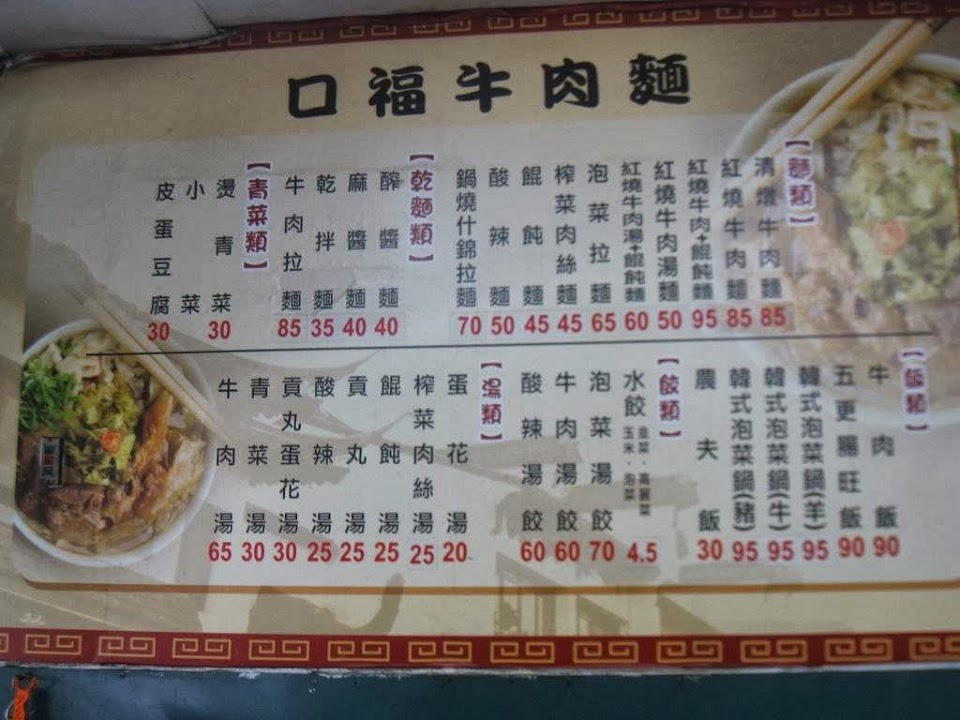 口福牛肉麵
【麵類】
清燉牛肉麵 85
紅燒牛肉麵 85
紅燒牛肉+餛飩麵 95
紅燒牛肉湯麵 50
紅燒牛肉湯+餛飩麵 60
泡菜拉麵 65
榨菜肉絲麵 45
餛飩麵 45
酸辣麵 50
鍋燒什錦拉麵 70
【乾麵類】
醡醬麵 40
麻醬麵 40
乾拌麵 35
牛肉拉麵 85
【青菜類】
燙青菜 30
小菜
皮蛋豆腐 30
【飯類】
牛肉飯 90
五更腸旺飯 90
韓式泡菜鍋(羊) 95
韓式泡菜鍋(牛) 95
韓式泡菜鍋(豬) 95
農夫飯 30
【餃類】
水餃 韭菜、高麗菜 玉米、泡菜 4.5
泡菜湯餃 70
牛肉湯餃 60
酸辣湯餃 60
【湯類】
蛋花湯 20
榨菜肉絲湯 25
餛飩湯 25
貢丸湯 25
酸辣湯 25
貢丸蛋花湯 30
青菜湯 30
牛肉湯 65